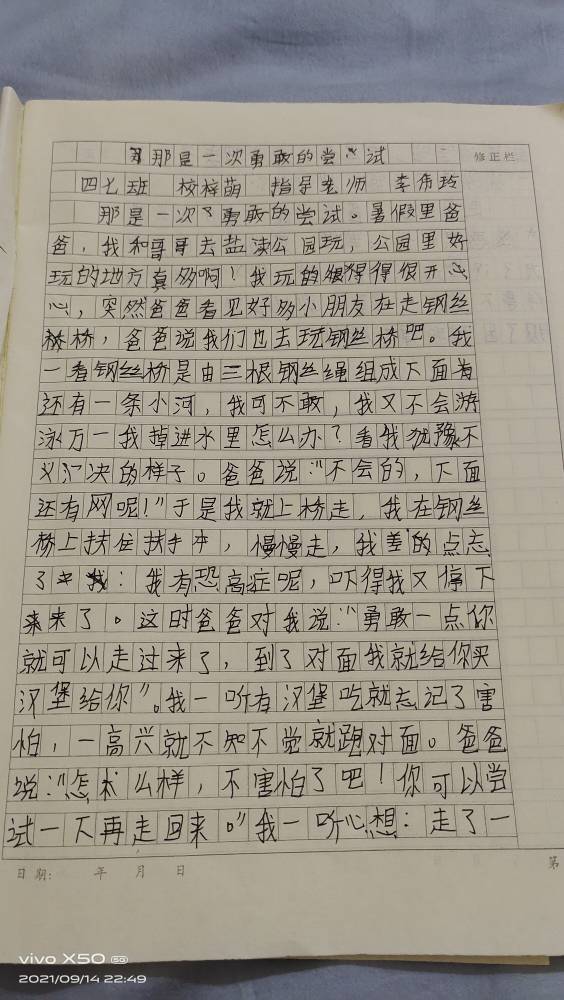 那是一次勇敢的尝试
修正栏
四七班 校梓萌 指导老师 李伟玲
那是一次勇敢的尝试。暑假里爸
爸，我和哥哥去盐渎公园玩，公园里好
玩的地方真多啊！我玩的很得得很开心
心，突然爸爸看见好多小朋友在走钢丝
桥桥，爸爸说我们也去玩钢丝桥吧。我
一看钢丝桥是由三根钢丝绳组成下面
还有一条小河，我可不敢，我又不会游
泳万一我掉进水里怎么办？看我犹豫不
决的样子。爸爸说：“不会的，下面
还有网呢！”于是我就上桥走，我在钢丝
桥上扶住扶手，慢慢走，我差的点忘
了我：我有恐高症呢，吓得我又停下
来来了。这时爸爸对我说：“勇敢一点你
就可以走过来了，到了对面我就给你买
汉堡给你”。我一听有汉堡吃就忘记了害
怕，一高兴就不知不觉就跑对面。爸爸
说：“怎么样，不害怕了吧！你可以尝
试一下再走回来。”我一听心想：走了一
日期： 年 月 日
第
vivo X50 5G
2021/09/14 22:49